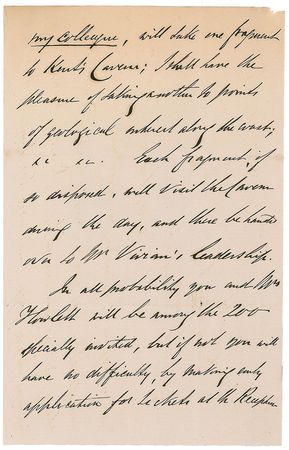 my colleague, will take one fragment
to Kent's Cavern; I shall have the
pleasure of taking another to points
of geological interest along the coast,
&c &c. Each fragment, if
so disposed, will visit the Cavern
during the day, and there be handed
over to Mr Vivian's leadership.
In all probability you and Mrs
Howlett will be among the 200
specially invited, but if not you will
have no difficulty, by making early
application for tickets at the Reception